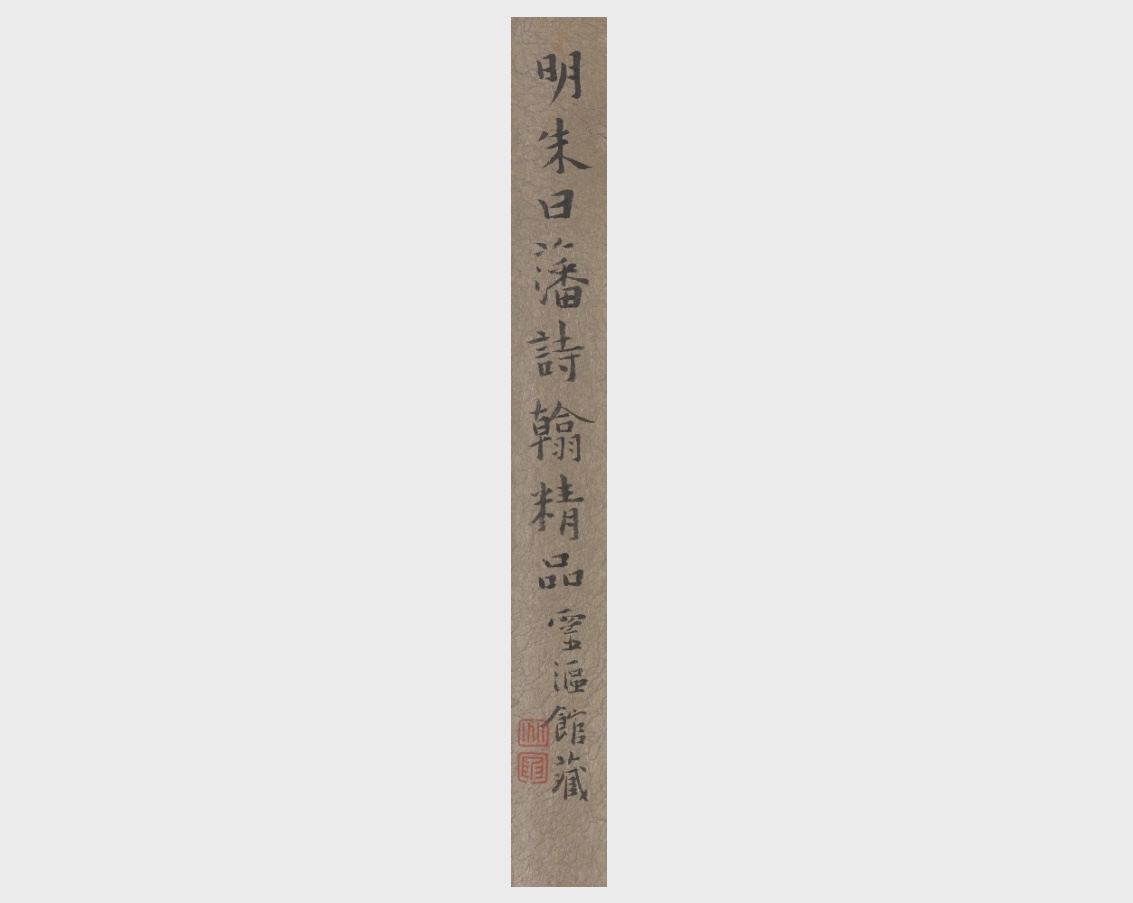 明朱曰藩詩翰精品靈漚館藏